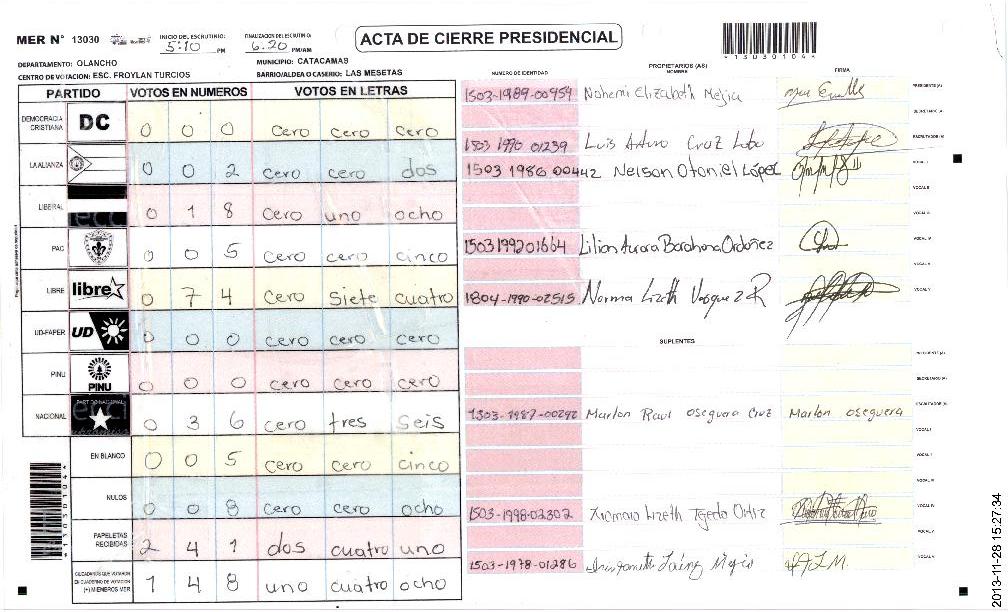 MER N° 13030
INICIO DEL ESCRUTINIO: 5:10 PM
FINALIZACION DEL ESCRUTINIO: 6:20 PM/AM
ACTA DE CIERRE PRESIDENCIAL
*13030104*
DEPARTAMENTO: OLANCHO
MUNICIPIO: CATACAMAS
CENTRO DE VOTACION: ESC. FROYLAN TURCIOS
BARRIO/ALDEA O CASERIO: LAS MESETAS
PARTIDO VOTOS EN NUMEROS VOTOS EN LETRAS
DEMOCRACIA CRISTIANA DC 0 0 0 cero cero cero
LA ALIANZA 0 0 2 cero cero dos
LIBERAL 0 1 8 cero uno ocho
PAC 0 0 5 cero cero cinco
LIBRE libre 0 7 4 cero siete cuatro
UD-FAPER UD 0 0 0 cero cero cero
PINU PINU 0 0 0 cero cero cero
NACIONAL 0 3 6 cero tres seis
EN BLANCO 0 0 5 cero cero cinco
NULOS 0 0 8 cero cero ocho
PAPELETAS RECIBIDAS 2 4 1 dos cuatro uno
CIUDADANOS QUE VOTARON EN CUADERNO DE VOTACION (+) MIEMBROS MER 1 4 8 uno cuatro ocho
*13030104*
NUMERO DE IDENTIDAD
PROPIETARIOS (AS)
NOMBRE
FIRMA
1503-1989-00954 Nohemi Elizabeth Mejia
PRESIDENTE (A)
SECRETARIO (A)
1503 1990 01239 Luis Arturo Cruz Lobo
ESCRUTADOR (A)
1503 1986 00442 Nelson Otoniel López
VOCAL I
VOCAL II
VOCAL III
1503199201664 Lilian Aurora Barahona Ordoñez
VOCAL IV
VOCAL V
1804-1990-02515 Norma Lizeth Vasquez R
SUPLENTES
PRESIDENTE (A)
SECRETARIO (A)
1503-1987-00292 Marlon Raul Oseguera Cruz Marlon Oseguera
ESCRUTADOR (A)
VOCAL I
VOCAL II
VOCAL III
1503-1998-02302 Xiomara Lizeth Tejeda Ortiz
VOCAL IV
VOCAL V
1503-1978-01286 Laínz Mejía
2013-11-28 15:27:34